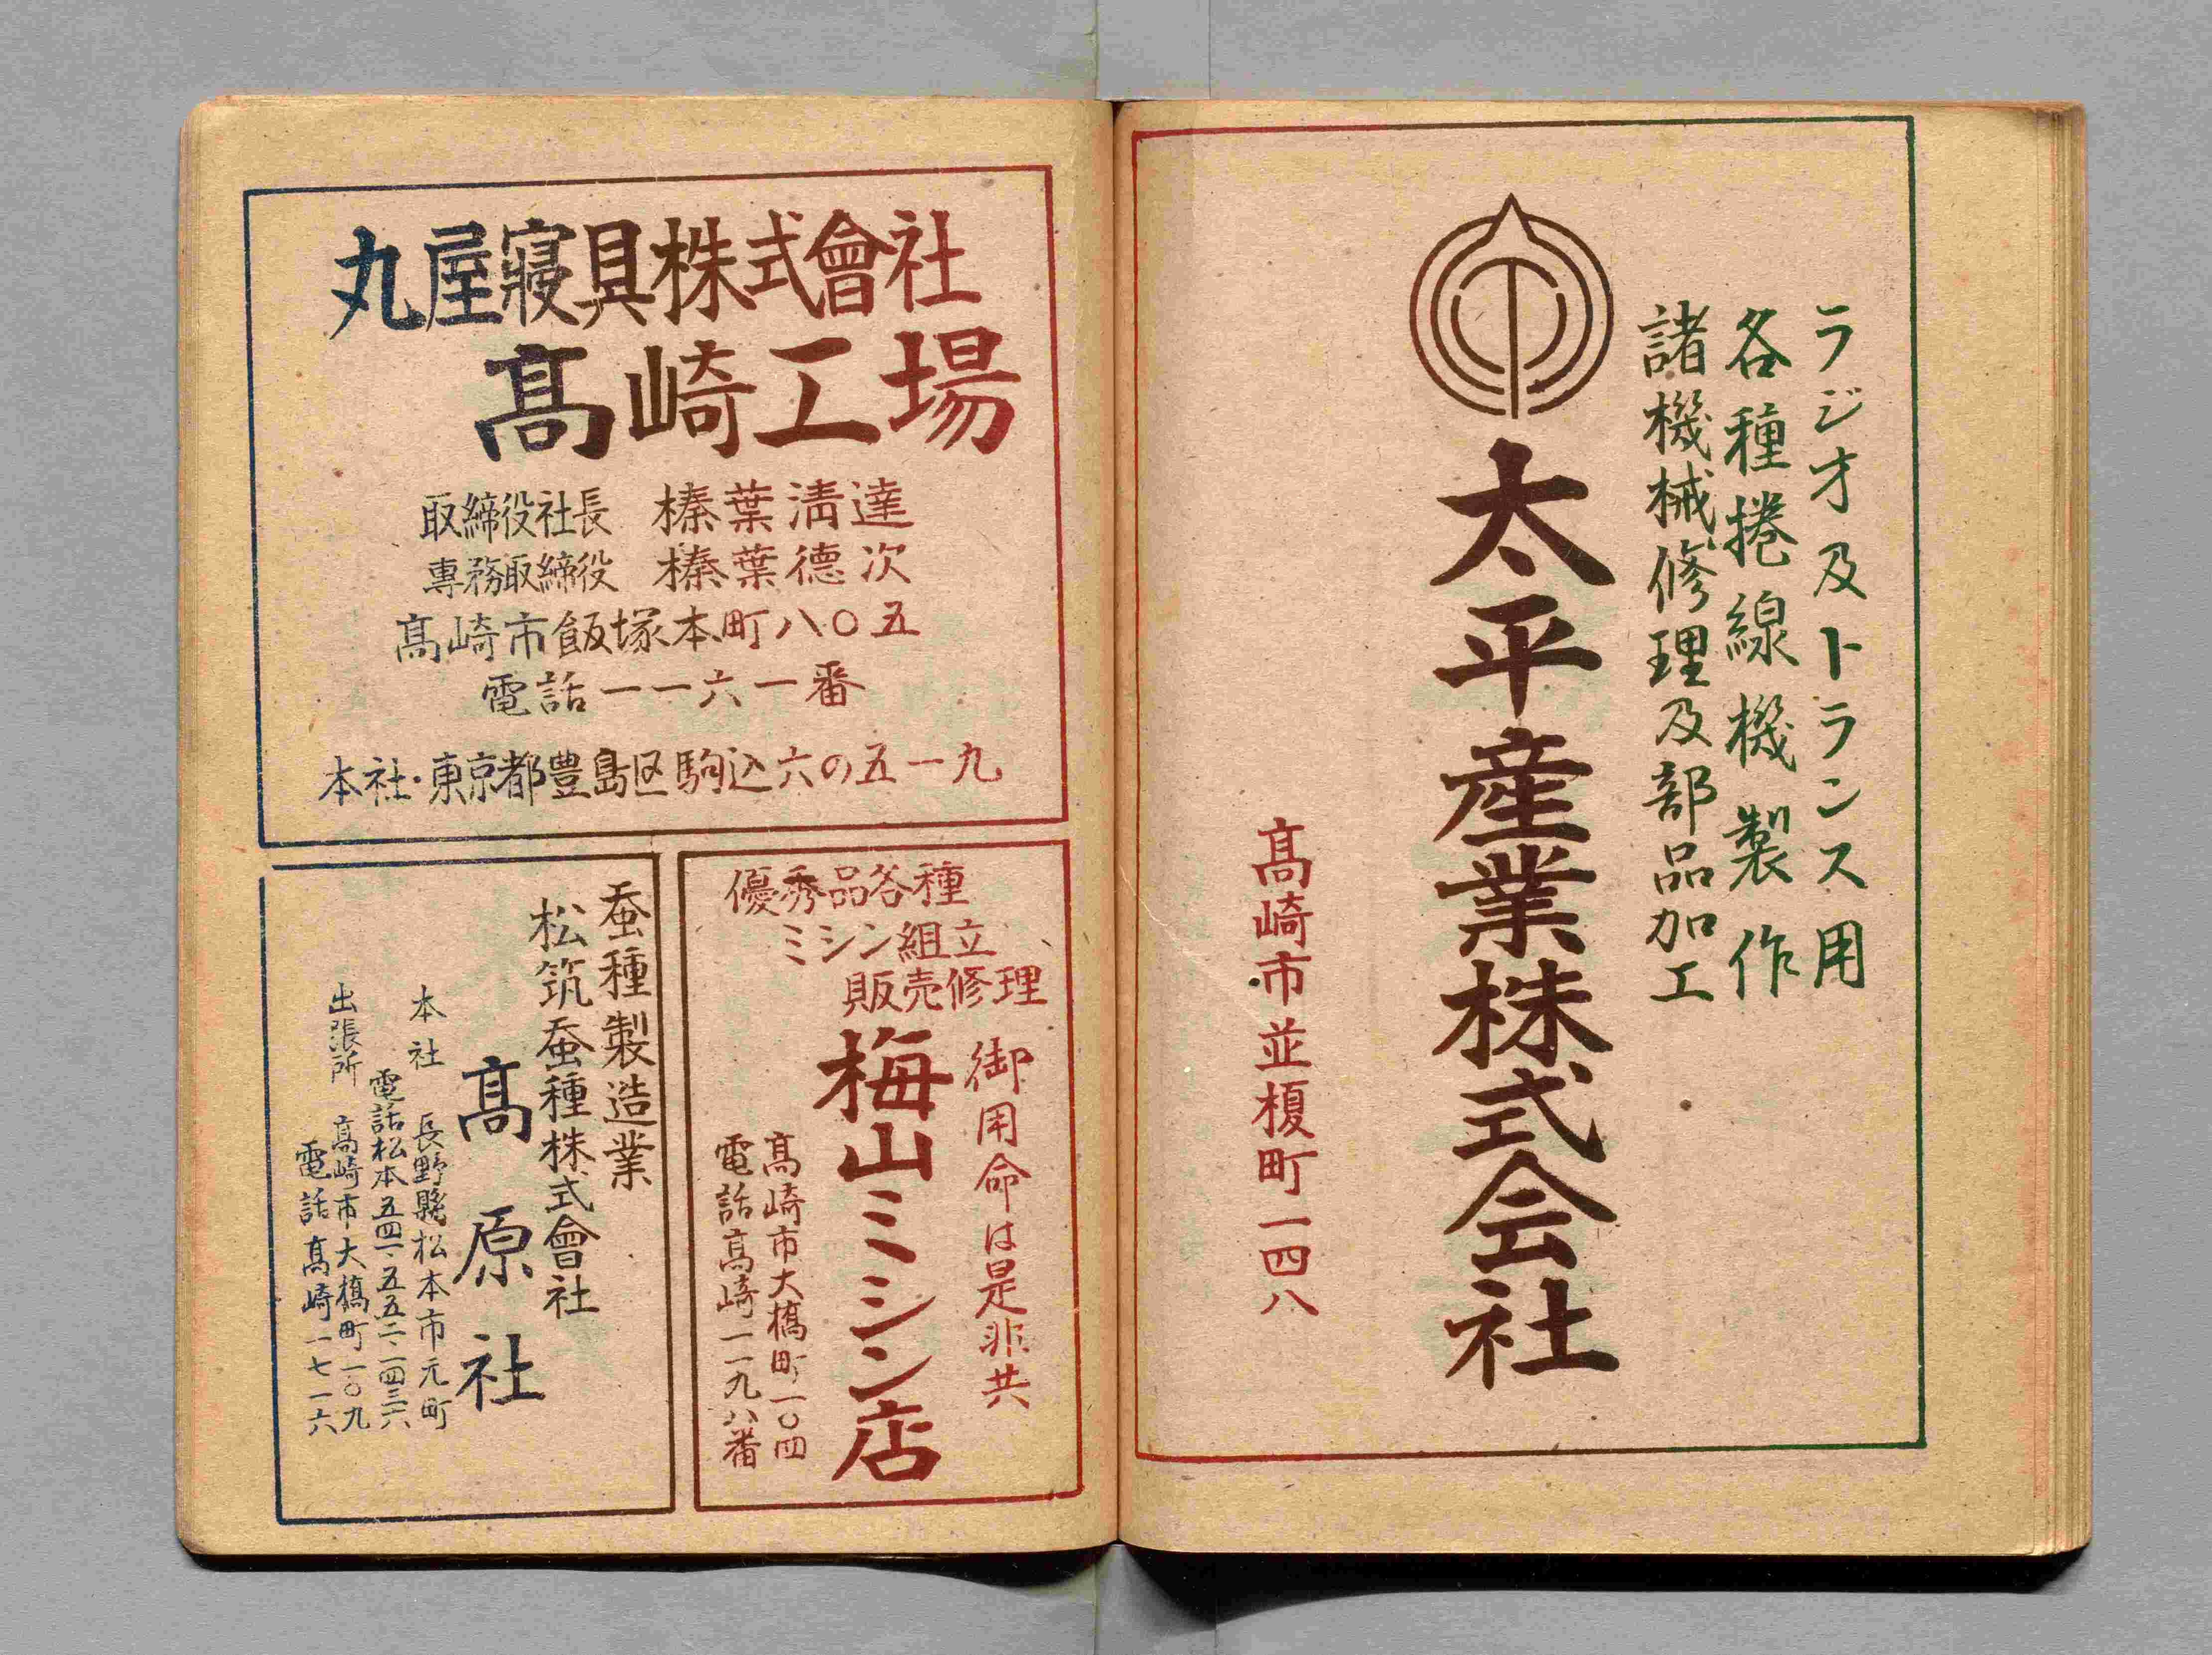 ラジオ及トランス用
各種捲線機製作
諸機械修理及部品加工
太平産業株式会社
髙崎市並榎町一四八
丸屋寢具株式會社
髙崎工場
取締役社長 榛葉淸達
專務取締役 榛葉德次
髙崎市飯塚本町八〇五
電話一一六一番
本社・東京都豊島区駒込六の五一九
優秀品各種
ミシン組立
販売修理
御用命は是非共
梅山ミシン店
髙崎市大橋町一〇四
電話髙崎一一九八番
蚕種製造業
松筑蚕種株式會社
髙原社
本社 長野縣松本市元町
電話松本五四一・五五二・一四三六
出張所 髙崎市大橋町一〇九
電話髙崎一七一六